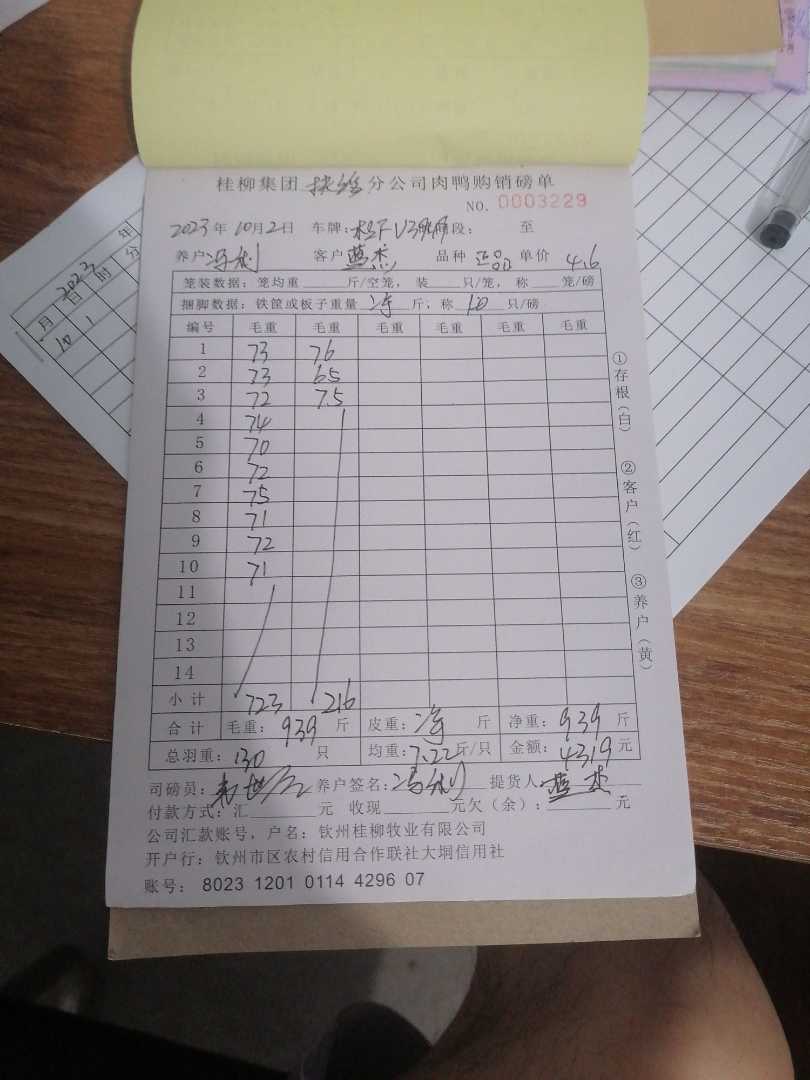 桂柳集团 扶绥 分公司肉鸭购销磅单
NO. 0003229
2023年 10月2日 车牌: 段: 至
养户 客户 蓝杰 品种 正品 单价 4.6
笼装数据: 笼均重 斤/空笼, 装 只/笼, 称 笼/磅
捆脚数据: 铁筐或板子重量 净 斤, 称 10 只/磅
编号 毛重 毛重 毛重 毛重 毛重 毛重
1 73 76
2 73 65
3 72 75
4 74
5 70
6 72
7 75
8 71
9 72
10 71
11
12
13
14
小计 723 216
合计 毛重: 939 斤 皮重: 净 斤 净重: 939 斤
总羽重: 130 只 均重: 7.22 斤/只 金额: 4319 元
司磅员: 养户签名: 提货人 蓝杰
付款方式: 汇 元 收现 元欠(余): 元
公司汇款账号, 户名: 钦州桂柳牧业有限公司
开户行: 钦州市区农村信用合作联社大垌信用社
账号: 8023 1201 0114 4296 07
①存根(白)
②客户(红)
③养户(黄)
2023 年
月 日 时 分
10 1